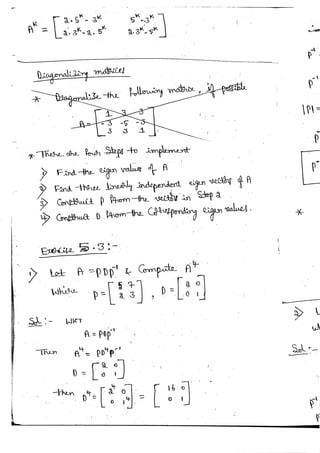 A^K = [ 2.5^K - 3^K   5^K - 3^K
2.3^K - 2.5^K   2.3^K - 5^K ]
Diagonalizing matrices
* Diagonalize the following matrix, if possible
A = [ 1 3 3
-3 -5 -3
3 3 1 ]
* There are four Steps to implement
1) Find the eigen values of A
2) Find three linearly independent eigen vectors of A
3) Construct P from the vectors in Step 2
4) Construct D from the corresponding eigen values.
Exercise 5.3:-
1) Let A = PDP^-1 & Compute A^4
Where P = [ 5 7
2 3 ], D = [ 2 0
0 1 ]
Sol:- WKT
A = PDP^-1
Then A^4 = PD^4P^-1
D = [ 2 0
0 1 ]
then D^4 = [ 2^4 0
0 1^4 ] = [ 16 0
0 1 ]
P^-1
P^-1
|P| =
P
P^-1
*
2) L
Sol:-
P^-1